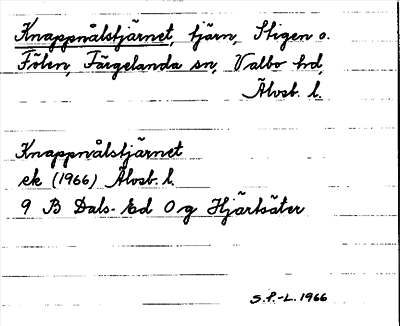 Knappnålstjärnet, tjärn, Stigen o.
Fölen, Färgelanda sn, Valbo hd,
Älvsb. l.
Knappnålstjärnet
ek (1966) Älvsb. l.
9 B Dals-Ed O g Hjärtsäter
S.F.-L. 1966